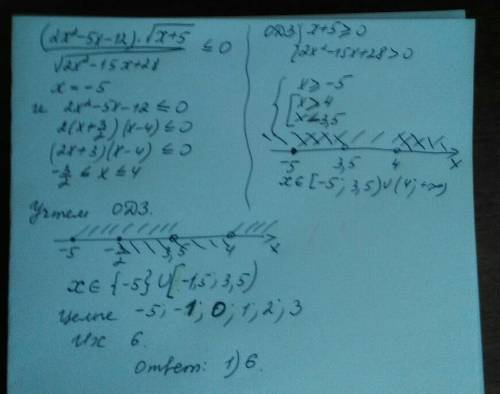 (2x²-5x-12)·√x+5 / √2x²-15x+28 ≤ 0
x = -5
и 2x²-5x-12 ≤ 0
2(x+3/2)(x-4) ≤ 0
(2x+3)(x-4) ≤ 0
-3/2 ≤ x ≤ 4
ОДЗ { x+5 ≥ 0
2x²-15x+28 > 0
{ x ≥ -5
[ x > 4
x < 3,5
-5 3,5 4 x
x ∈ [-5; 3,5) ∪ (4; +∞)
Учтем ОДЗ.
-5 -3/2 3,5 4 x
x ∈ {-5} ∪ [-1,5; 3,5)
Целые -5; -1; 0; 1; 2; 3
Их 6.
Ответ: 1) 6.